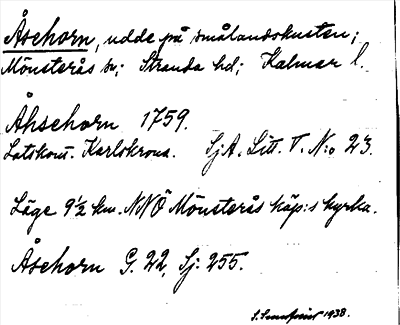 Åsehorn, udde på smålandskusten;
Mönsterås sn; Stranda hd; Kalmar l.
Åhsehorn 1759.
Lotskont. Karlskrona. SjA. Litt. T. N:o 23.
Läge 9½ km. NNÖ Mönsterås köp:s kyrka.
Åsehorn G. 22, Sj: 255.
1938.